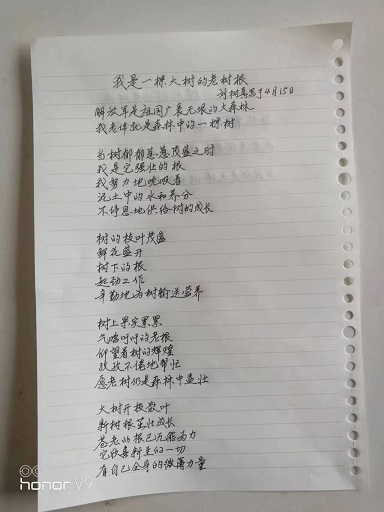 我是一棵大树的老树根
树真写于4月15日
解放军是祖国广袤无垠的大森林
我老伴就是森林中的一棵树
当树郁郁葱葱茂盛之时
我是它强壮的根
我努力地吮吸着
泥土中的水和养分
不停息地供给树的成长
树的枝叶茂盛
鲜花盛开
树下的根
起劲工作
辛勤地为树输送营养
树上果实累累
气喘吁吁的老根
仰望着树的辉煌
孜孜不倦地帮忙
愿老树仍是森林中茁壮
大树开枝散叶
新树根茁壮成长
苍老的根已无能为力
它欣喜新生的一切
有自己全身的微薄力量
honor V9